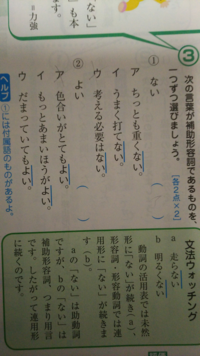 ない」
も本
す。
力強
③ 次の言葉が補助形容詞であるものを、
一つずつ選びましょう。〔各2点×2〕
① ない （　）
ア ちっとも重くない。
イ うまく打てない。
ウ 考える必要はない。
② よい （　）
ア 色合いがとてもよい。
イ もっとあまいほうがよい。
ウ だまっていてもよい。
ヘルプ ①には付属語のものがあるよ。
文法ウォッチング
a 走らない
b 明るくない
動詞の活用表では未然
形に「ない」が続き（a）、
形容詞・形容動詞では連
用形に「ない」が続きま
す（b）。
aの「ない」は助動詞
ですが、bの「ない」は
補助形容詞、つまり用言
です。したがって連用形
に続くのです。